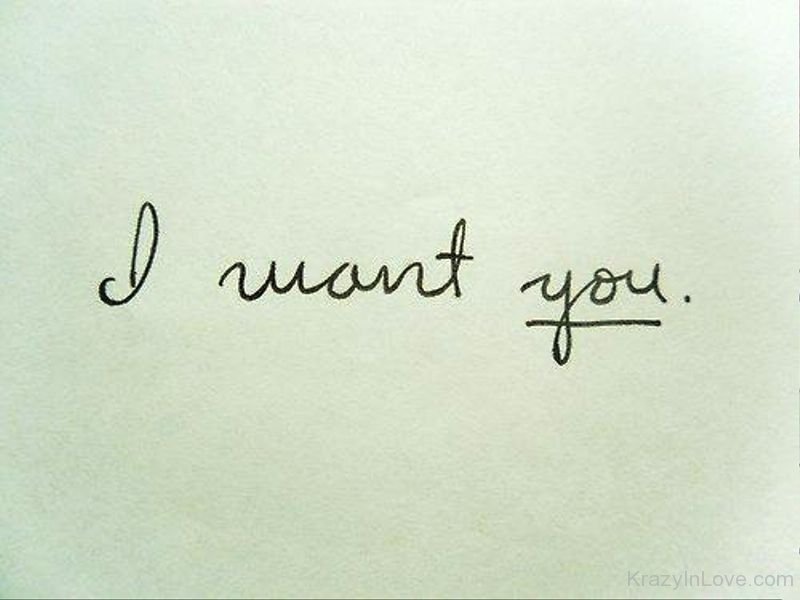 I want you.
KrazyInLove.com